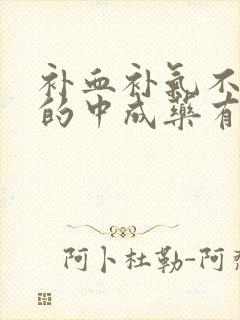 补血补氣不
的中成藥有
阿卜杜勒-阿